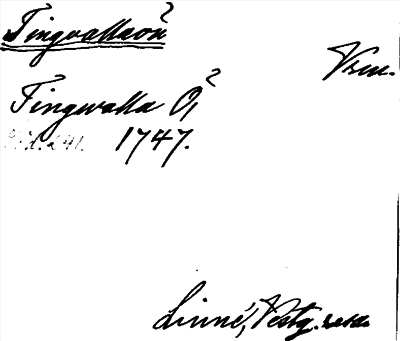 Tingvallaön
Vrm.
Tingwalla Ö,
sid. 241. 1747.
Linné, Vestg. resa.